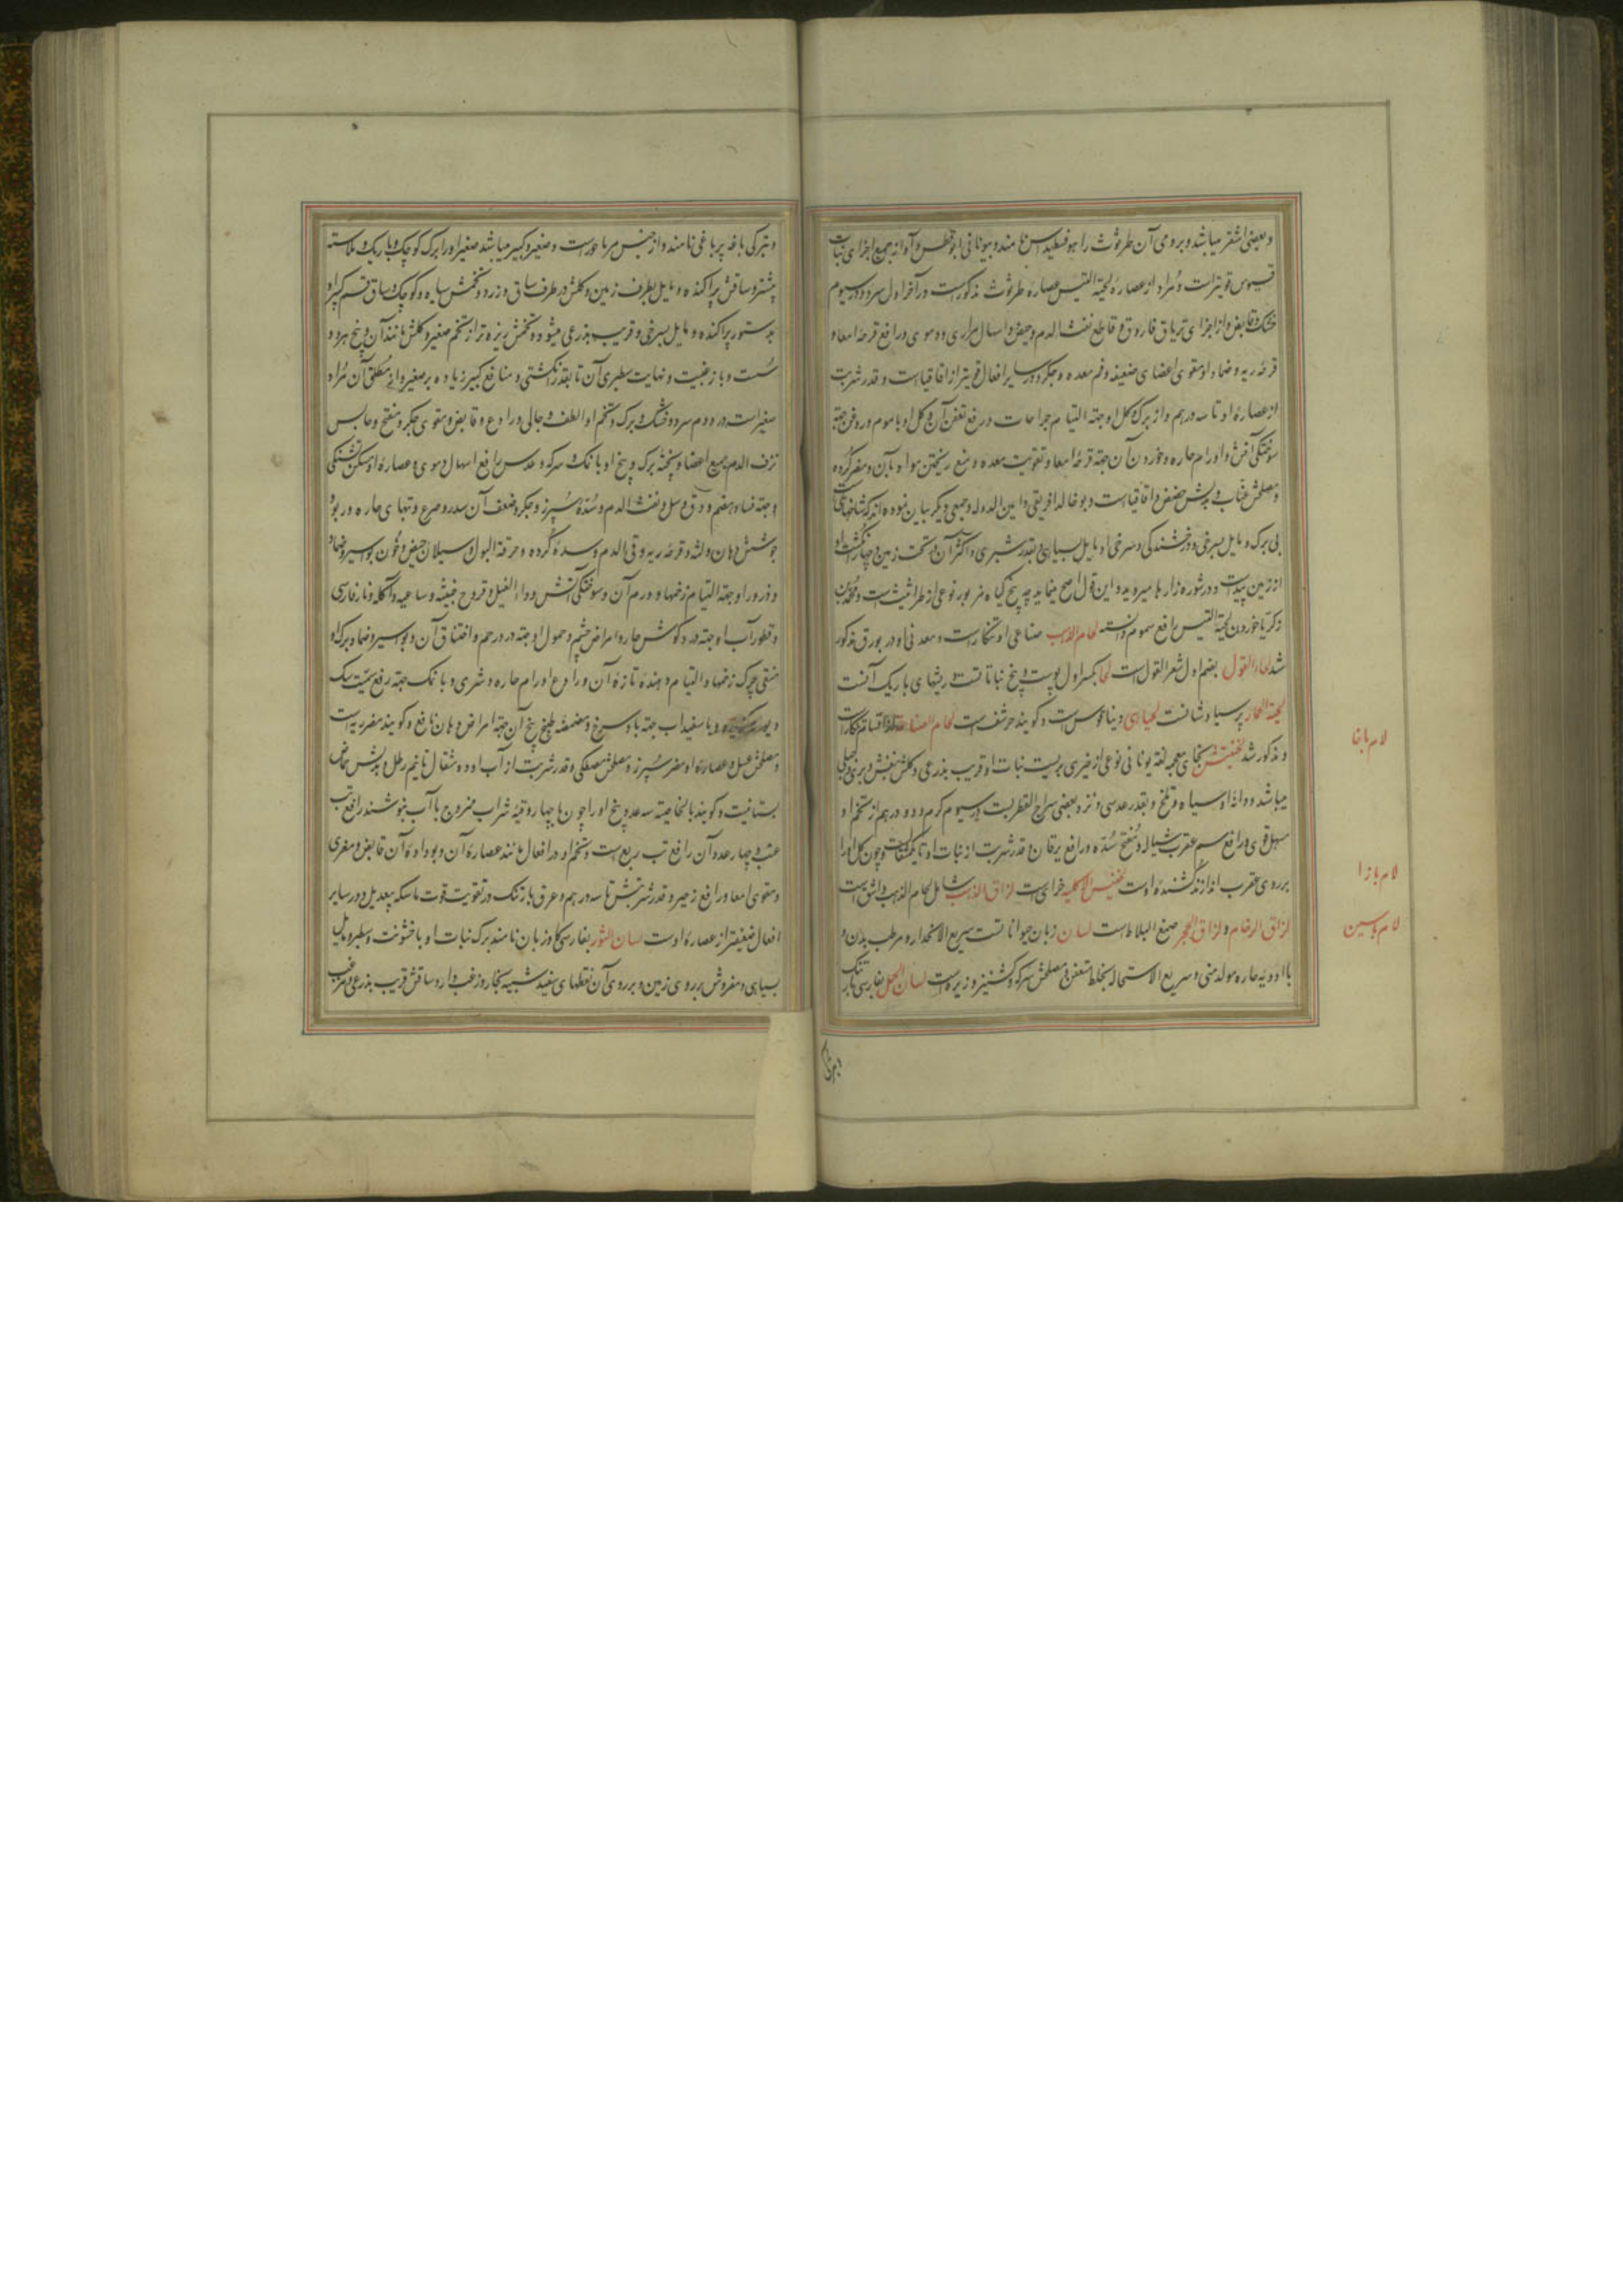 و بعضی اشقر میباشد و برومی آن طرثوث را هوفسطیداس نامند و بیونانی
قیسوس قویتر است و مراد از عصارهٔ لحیة التیس عصارهٔ طراثوث مذکور است در آخر اول سرد و در سیوم
خشک و قابض و از اجزای تریاق فاروق و قاطع نفث الدم و حیض و اسهال مراری و دموی و رافع قرحهٔ امعا و
قرحهٔ ریه و ضماد او مقوی اعضای ضعیفه و فم معده و جگر و در سایر افعال قویتر از اقاقیا است و قدر شربت
از عصارهٔ او تا سه درهم و از برک و کل او جهة التیام جراحات و رفع تعفن آن و کل او با موم و روغن جهة
سوختکی آتش و اورام حاره و خوردن آن جهة قرحهٔ امعا و تقویت معده و منع ریختن مواد بآن و مضر گرده
و مصلحش عناب و بدلش حضض و اقاقیا است و بوخالد افریقی و امین الدوله و جمعی دیکر بیان نموده اند که شاخهای
بی برک و مایل بسرخی و درخشندکی و سرخی او مایل بسیاهی و بقدر شبری و اکثر آن در تحت زمین و چهار انگشت او
از زمین پیداست و در شوره زارها میروید و این قول اصح مینماید چه بیخ گیاه مزبور نوعی از طراثیث است و محمد بن
زکریا خوردن لحیة التیس رافع سموم دانسته لحام الذهب صناعی او تنکار است و معدنی او در بورق مذکور
شد لحاء الغول بضم اول شعر الغول است لحا بکسر اول پوست و بیخ نباتاتست و ریشهای باریک آنست
لحیة الحمار پرسیاوشانست و کویند حرشف است لحام الصناعة
و مذکور شد بخای معجمه لغة یونانی نوعی از خیری بریست نبات او قریب بذرعی و کلش بنفش و بری و جبلی
میباشد و دانهٔ او سیاه و تلخ و بقدر عدسی و نزد بعضی سراج القطرب است در سیوم کرم و دو درهم از تخم او
مسهل قوی و رافع سم عقرب سیاله و مفتح سده و رافع یرقان و قدر شربت از نبات او تا یکمثقالست و چون کل او را
بر روی عقرب اندازند کشندهٔ اوست خزای است لزاق الذهب شامل لحام الذهب و اشق است
لزاق الرخام و لزاق الحجر صمغ البلاط است لسان زبان حیواناتست سریع الانحدار و مرطب بدن و
با ادویهٔ حاره مولد منی و سریع الاستحاله بخلط متعفن و مصلحش سرکه و کشنیز و زیره است لسان الحمل بفارسی بارتنک
لام با خا
لام با زا
لام با سین
و بترکی
و بترکی باغه یرپاغی نامند و از جنس مرماحوز است و صغیر و کبیر میباشد صغیر او را برک کوچک و باریک و ملاست
بیشتر و ساقش پراکنده و مایل بطرف زمین و کلش در طرف ساق و زرد و تخمش سیاه و کوچک و ساق قسم کبیر او
بدستور پراکنده و مایل بسرخی و قریب بذرعی میشود و تخمش ریزه تر از تخم صغیر و کلش مانند آن و بیخ هردو
سست و با زغبیت و نهایت سطبری آن تا بقدر انگشتی و منافع کبیر زیاده بر صغیر و از مطلق آن مراد
صغیر است در دوم سرد و خشک و برک و تخم او الطف و جالی و رادع و قابض و مقوی جگر و مفتح و حابس
نزف الدم جمیع اعضا و پختهٔ برک و بیخ او با نمک و سرکه و عدس رافع اسهال دموی و عصارهٔ او مسکن تشنکی
و جهة فساد هضم و دق و سل و نفث الدم و سدهٔ سپرز و جگر و ضعف آن سدر و صرع و تبهای حاره و ربو و
جوشش دهان و لثه و قرحهٔ ریه و قی الدم و سدهٔ گرده و حرقة البول و سیلان حیض و خون بواسیر و ضماد
و ذرور او جهة التیام زخمها و ورم آن و سوختکی آتش و داء الفیل و قروح خبیثه و ساعیه و آکله و نار فارسی
و قطور آب او جهة درد گوش حار و امراض چشم و حمول او جهة درد رحم و اختناق آن و بواسیر و ضماد برک او
منقی چرک زخمها و التیام دهندهٔ تازهٔ آن و رادع اورام حاره و شری و با نمک جهة رفع سمیت سک
دیوانه گزیده و با سفیداب جهة باد سرخ و مضمضهٔ طبیخ بیخ آن جهة امراض دهان نافع و کویند مضر ریه است
و مصلحش عسل و عصارهٔ او مضر سپرز و مصلحش مصطکی و قدر شربت از آب او ده مثقال تا نیم رطل و بدلش حماض
بستانیست و کویند بالخاصیته سه عدد بیخ او را چون با چهار وقیه شراب ممزوج با آب بنوشند رافع تب
غب و چهار عدد آن رافع تب ربع است و تخم او در افعال مانند عصارهٔ آن و بودادهٔ آن قابض و مغری
و مقوی امعا و رافع زحیر و قدر شربتش تا سه درهم و عرق بارتنک در تقویت قوت ماسکه بیعدیل و در سایر
افعال ضعیفتر از عصارهٔ اوست لسان الثور بفارسی کاوزبان نامند برک نبات او با خشونت و سطبر و مایل
بسیاهی و مفروش بر روی زمین و بر روی آن نقطهای سفید شبیه بخار و زغب دار و ساقش قریب بذرعی و مزغب